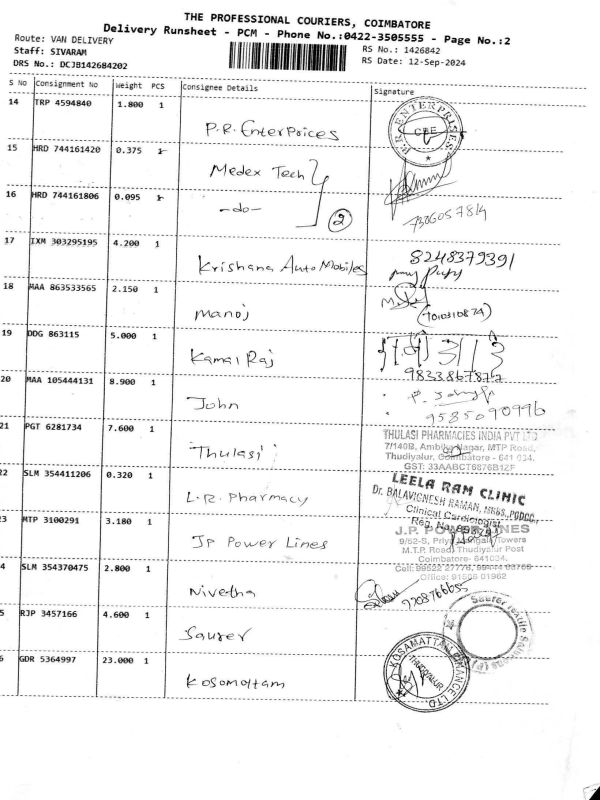 THE PROFESSIONAL COURIERS, COIMBATORE
Delivery Runsheet - PCM - Phone No.:0422-3505555 - Page No.:2
Route: VAN DELIVERY
Staff: SIVARAM
RS No.: 1426842
DRS No.: DCJB142684202
RS Date: 12-Sep-2024
S No Consignment No Weight PCS Consignee Details Signature
14 TRP 4594840 1.800 1
P.R. EnterPrices
P.R. ENTERPRISES
CBE
15 HRD 744161420 0.375 1
Medex Tech
16 HRD 744161806 0.095 1
-do- 2
17 IXM 303295195 4.200 1
Krishana Auto Mobiles
8248379391
18 MAA 863533565 2.150 1
Manoj
19 DDG 863115 5.000 1
Kamal Raj
20 MAA 105444131 8.900 1
John
9585090996
21 PGT 6281734 7.600 1
Thulasi
THULASI PHARMACIES INDIA PVT LTD
7/140B, Ambika Nagar, MTP Road,
Thudiyalur, Coimbatore - 641 034.
GST: 33AABCT6876B1ZF
22 SLM 354411206 0.320 1
L.R. Pharmacy
LEELA RAM CLINIC
Dr. BALAVIGNESH RAMAN, MBBS., PGDCC.,
Clinical Cardiologist
Reg. No.
3 MTP 3100291 3.180 1
JP Power Lines
J.P. POWER LINES
9/62-S, Priya Towers
M.T.P. Road Thudiyalur Post
Coimbatore- 641034.
Cell: 99522 27776,
Office: 91508 01962
4 SLM 354370475 2.800 1
Nivetha
5 RJP 3457166 4.600 1
Saurer
Saurer Textile Solutions
6 GDR 5364997 23.000 1
Kosomattam
KOSAMATTAM FINANCE LTD
THUDIYALUR